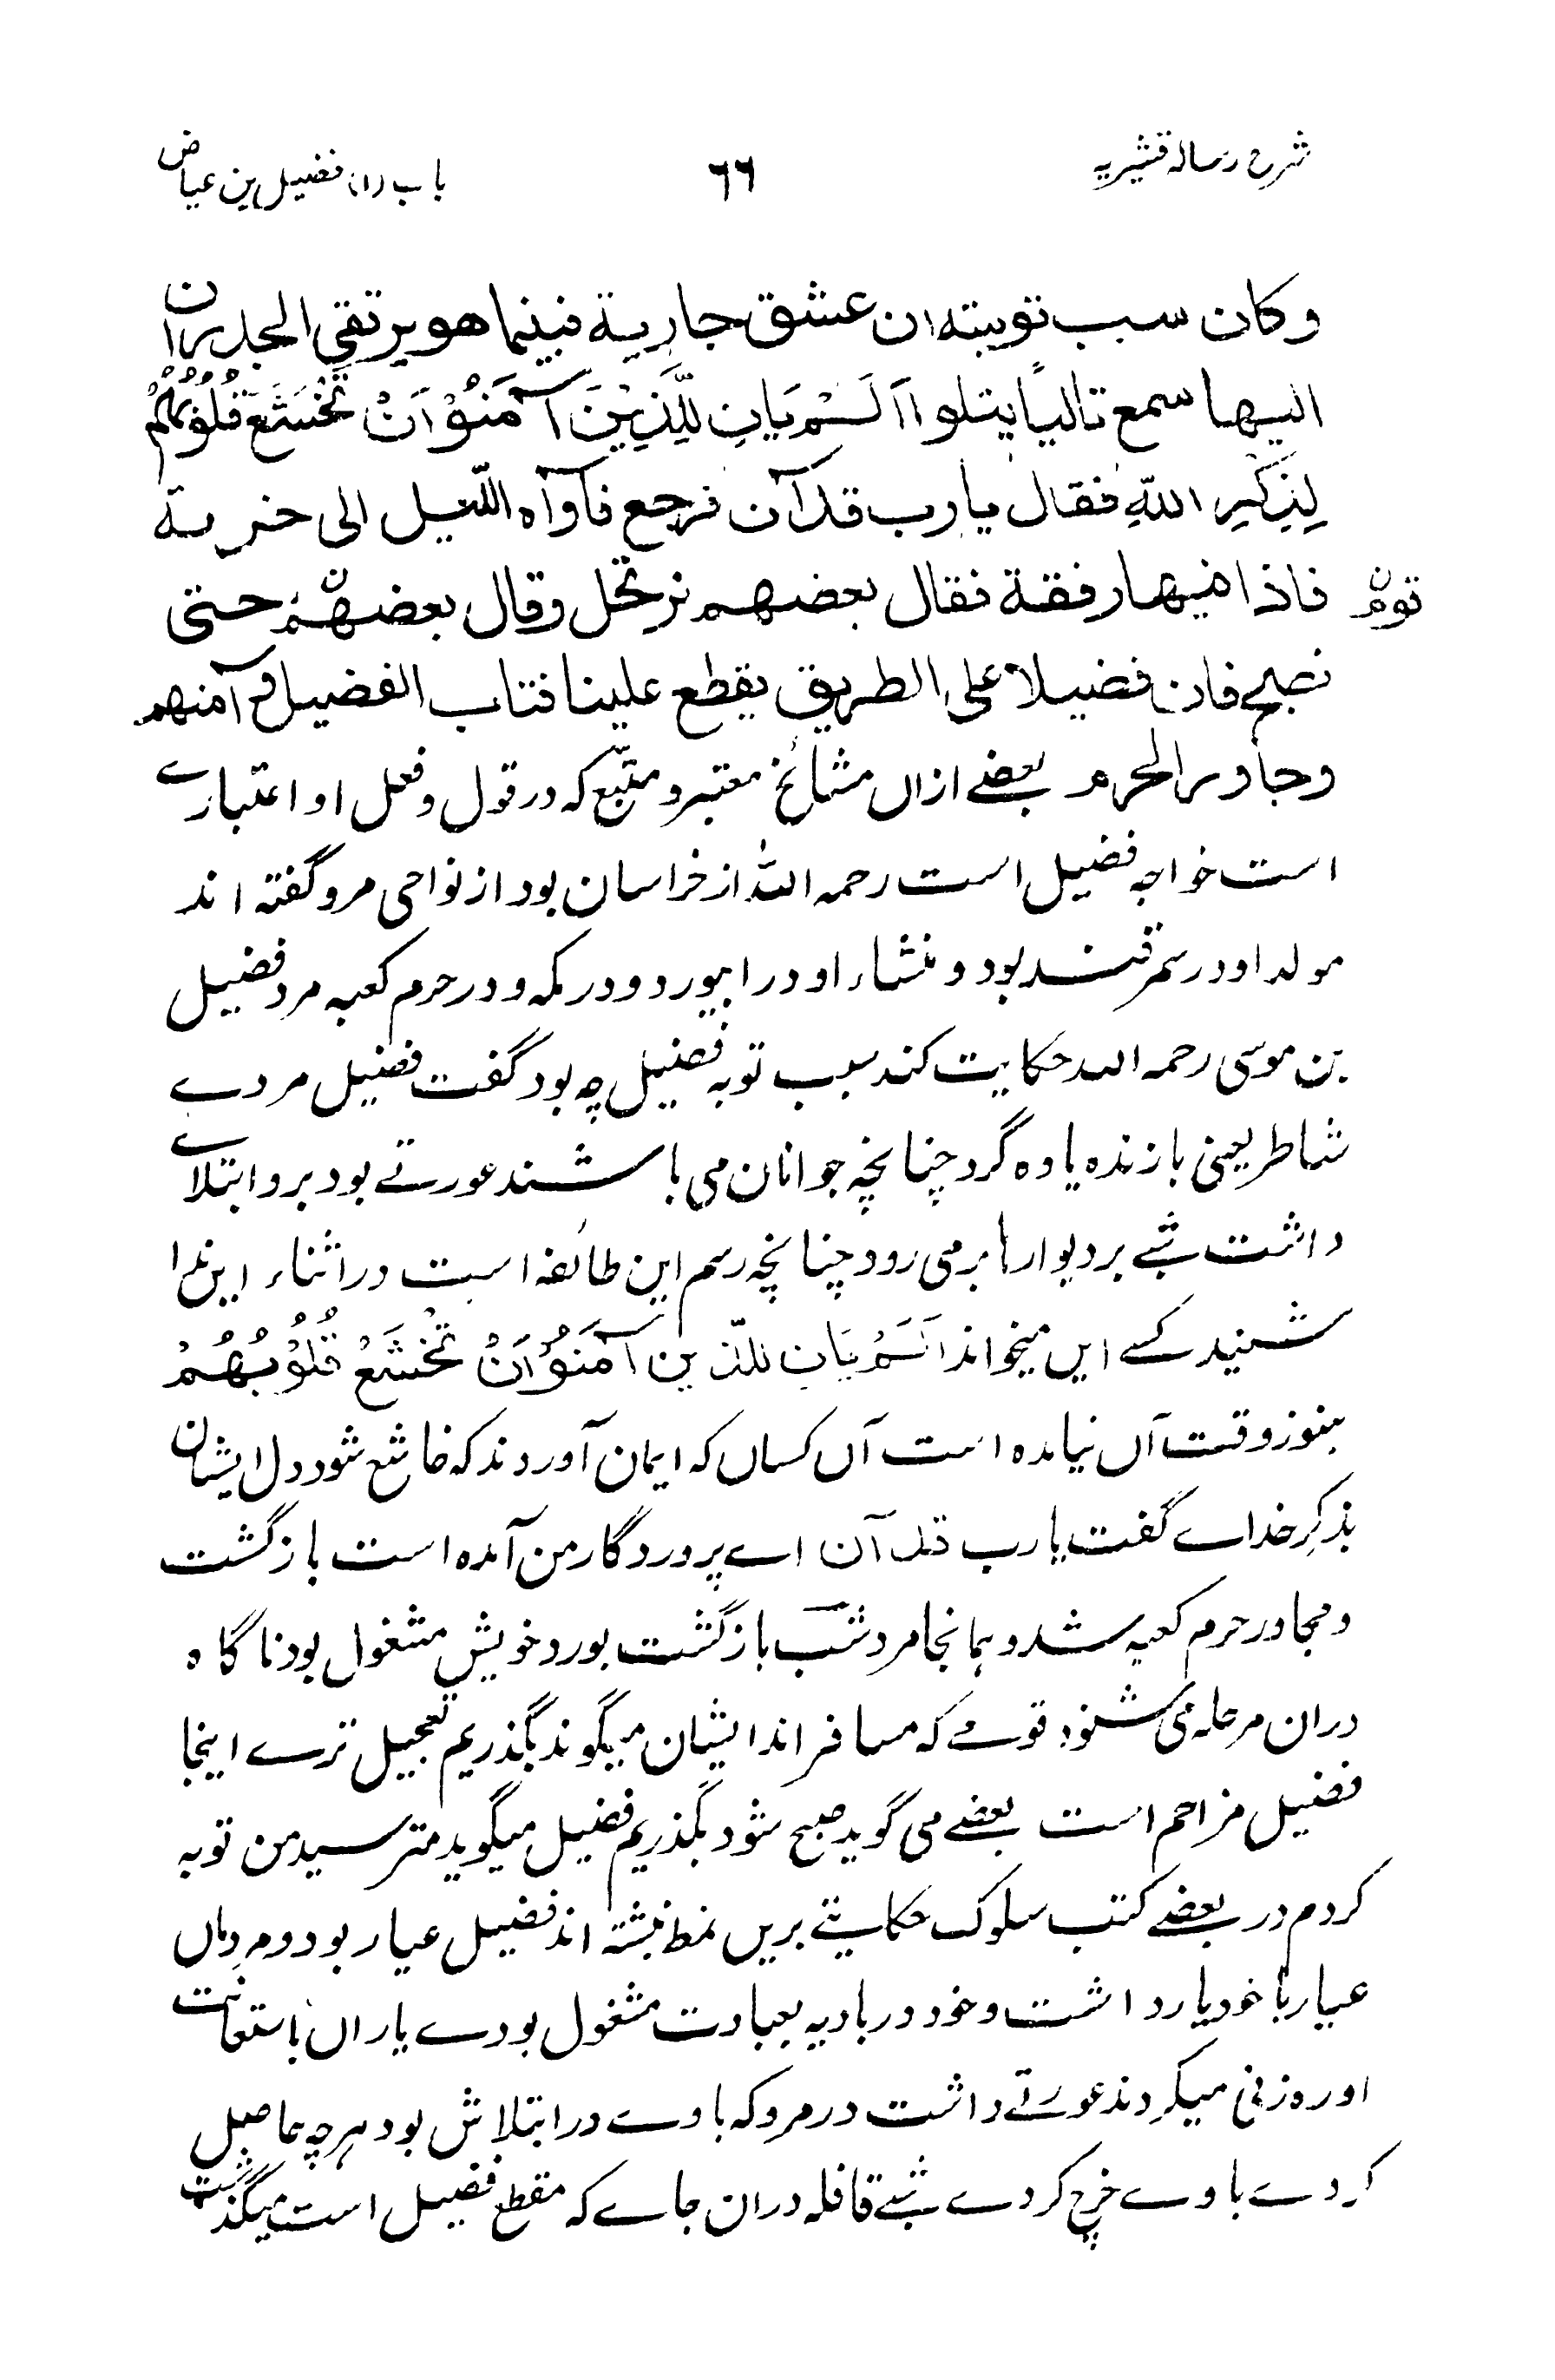 شرح رسالہ قشیریہ
٦٦
باب (۱) فضیل بن عیاض
وكان سبب توبته ان عشق جارية فبينما هو يرتقي الجدران
اليها سمع تاليًا يتلوا اَلَمْ يَانِ لِلَّذِيْنَ آمَنُوْا اَنْ تَخْشَعَ قُلُوْبُهُمْ
لِذِكْرِ اللهِ فقال يا رب قد آن فرجع فآواه اللّيل الى خربة
فاذا فيها رفقة فقال بعضهم نرتحل وقال بعضهم حتى
قومٌ
نصبح فان فضيلا على الطريق يقطع علينا فتاب الفضيل وآمنهم
وجاور الحرم بعضے ازاں مشائخ معتبر و متبّع کہ در قول و فعل او اعتبارے
است خواجہ فضیل است رحمہ اللہ از خراسان بود از نواحی مرو گفتہ اند
مولد او در سمرقند بود و منشاء او در ابیورد و در مکہ و در حرم کعبہ مرد فضیل
بن موسی رحمہ اللہ حکایت کند سبب توبہ فضیل چہ بود گفت فضیل مردے
شاطر یعنی بازندہ یاوہ گرد چنانچہ جوانان می باشند عورتے بود برو ابتلاے
داشت شبے بر دیوارہا برمی رود چنانچہ رسم این طائفہ است در اثناء این ندا
شنید کسے ایں میخواند اَلَمْ يَانِ للّذين آمَنُوْا اَنْ تَخْشَعْ قُلُوْبُهُمْ
ہنوز وقت آں نیامدہ است آں کساں کہ ایمان آوردند کہ خاشع شود دل ایشان
بذکرِ خداے گفت یا رب قد آن اے پروردگار من آمدہ است بازگشت
و مجاور حرم کعبہ شد و ہمانجا مرد شب بازگشت بورد خویش مشغول بود ناگاہ
دران مرحلہ می شنود قومے کہ مسافر اند ایشان میگوند بگذریم تعجیل ترے اینجا
فضیل مزاحم است بعضے می گوید صبح شود بگذریم فضیل میگوید مترسید من توبہ
کردم در بعضے کتب سلوک حکایتے بریں نمط نبشتہ اند فضیل عیار بود و مردماں
عیار با خود یار داشت و خود در بادیہ بعبادت مشغول بودے یاراں باستعانت
او رہ زنی میکردند عورتے داشت در مرو کہ با وے در ابتلاش بود ہرچہ حاصل
کردے با وے خرچ کردے شبے قافلہ دران جاے کہ مقطع فضیل است میگذشت